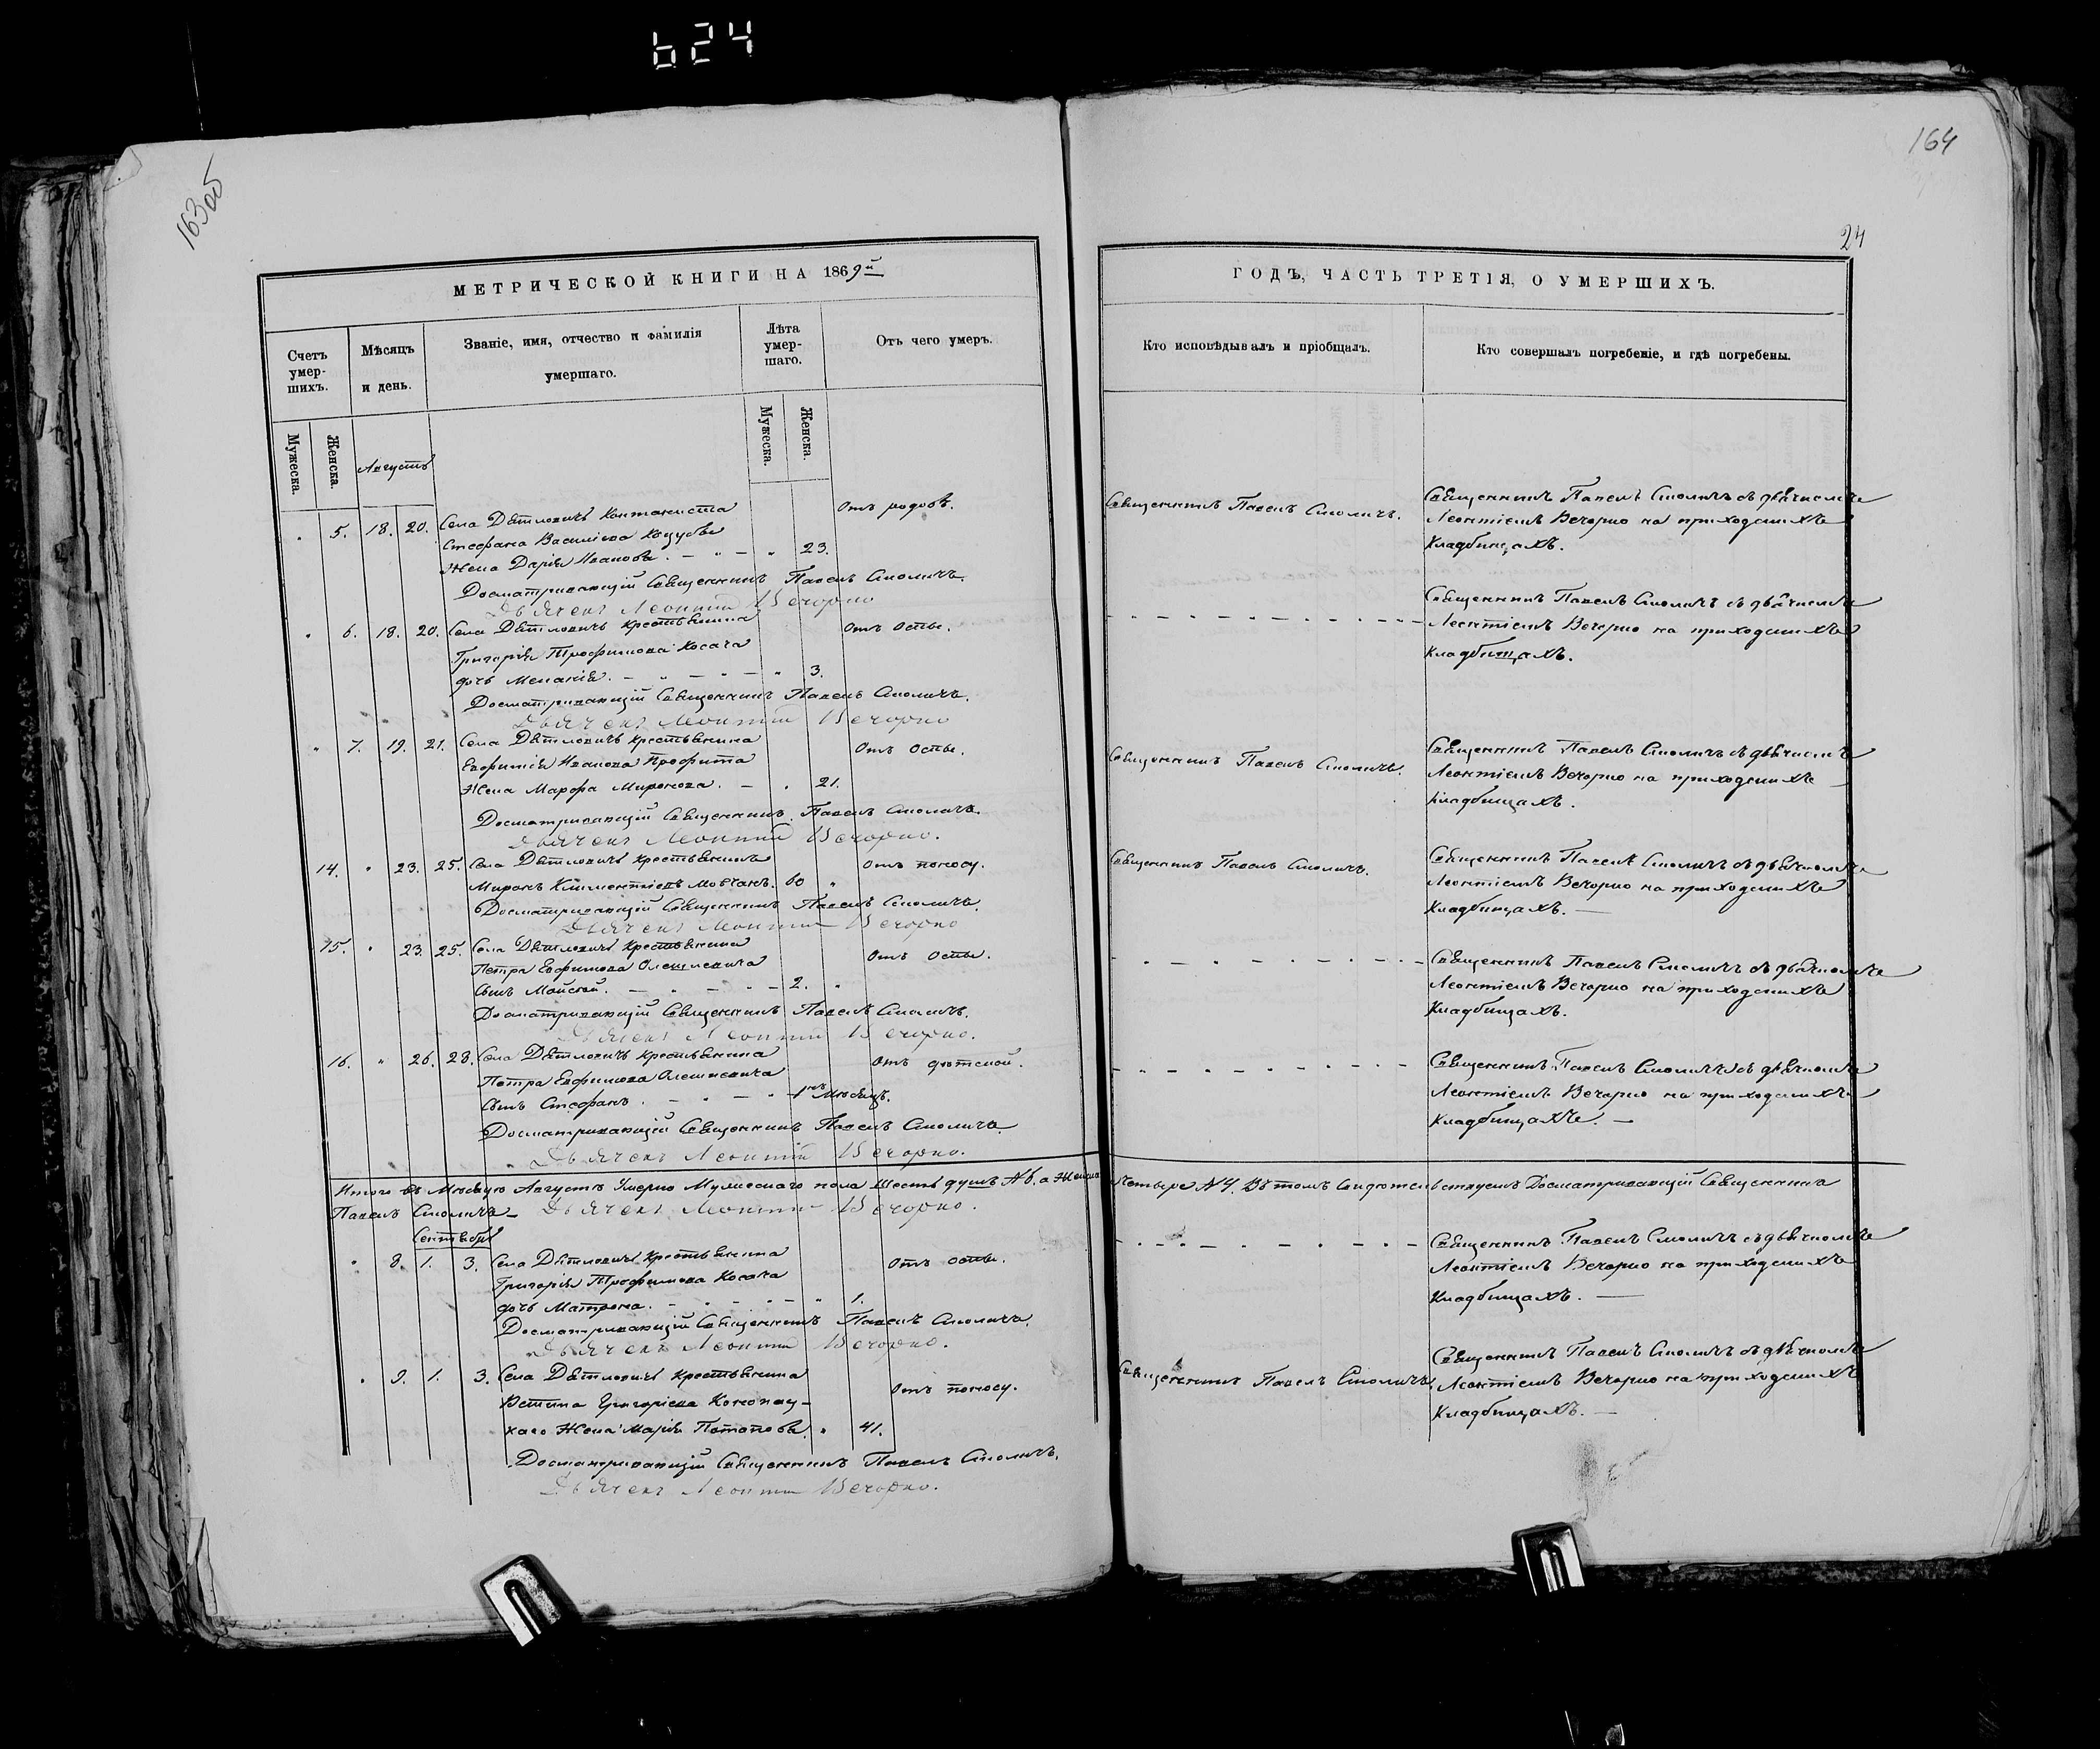 624
163об
164
24
МЕТРИЧЕСКОЙ КНИГИ НА 1869й
ГОДЪ, ЧАСТЬ ТРЕТІЯ, О УМЕРШИХЪ.
Счетъ умер-шихъ.
Мѣсяцъ и день.
Званіе, имя, отчество и фамилія умершаго.
Лѣта умер-шаго.
Отъ чего умеръ.
Кто исповѣдывалъ и пріобщалъ.
Кто совершалъ погребеніе, и гдѣ погребены.
Мужеска.
Женска.
Мужеска.
Женска.
Августъ
" 5. 18. 20. Села Дѣтловичъ
Стефана Василіева
Жена Дарія Иванова. — " — " 23.
Отъ родовъ.
Священникъ Павелъ Смоличъ.
Священникъ Павелъ Смоличъ съ дьячкомъ
Леонтіемъ Вечорко на приходскихъ
кладбищахъ.
Досматривающій Священникъ Павелъ Смоличъ.
Дьячекъ Леонтій Вечорко
" 6. 18. 20. Села Дѣтловичъ крестьянина
Григорія Трофимова Косача
дочь Меланія. — " — " — " 3.
Отъ оспы.
Священникъ Павелъ Смоличъ съ дьячкомъ
Леонтіемъ Вечорко на приходскихъ
кладбищахъ.
Досматривающій Священникъ Павелъ Смоличъ.
Дьячекъ Леонтій Вечорко
" 7. 19. 21. Села Дѣтловичъ крестьянина
Евфимія Иванова
Жена Марфа Миронова. — " 21.
Отъ оспы.
Священникъ Павелъ Смоличъ.
Священникъ Павелъ Смоличъ съ дьячкомъ
Леонтіемъ Вечорко на приходскихъ
кладбищахъ.
Досматривающій Священникъ Павелъ Смоличъ.
Дьячекъ Леонтій Вечорко.
14. " 23. 25. Села Дѣтловичъ крестьянинъ
Миронъ Климентіевъ Мовчанъ. 60 "
Отъ поносу.
Священникъ Павелъ Смоличъ.
Священникъ Павелъ Смоличъ съ дьячкомъ
Леонтіемъ Вечорко на приходскихъ
кладбищахъ. —
Досматривающій Священникъ Павелъ Смоличъ.
Дьячекъ Леонтій Вечорко
15. " 23. 25. Села Дѣтловичъ крестьянина
Петра Евфимова Олешкевича
сынъ Моисей. — " — " — 2. "
Отъ оспы.
Священникъ Павелъ Смоличъ съ дьячкомъ
Леонтіемъ Вечорко на приходскихъ
кладбищахъ.
Досматривающій Священникъ Павелъ Смоличъ.
Дьячекъ Леонтій Вечорко.
16. " 26. 28. Села Дѣтловичъ крестьянина
Петра Евфимова Олешкевича
сынъ Стефанъ. — " — " 1 мѣсяцъ.
Отъ дѣтской.
Священникъ Павелъ Смоличъ съ дьячкомъ
Леонтіемъ Вечорко на приходскихъ
кладбищахъ. —
Досматривающій Священникъ Павелъ Смоличъ.
Дьячекъ Леонтій Вечорко.
Итого въ Мѣсяцѣ Августѣ Умерло Мужескаго пола шесть душъ №6. а Женска четыре №4. Въ томъ свидѣтельствуемъ Досматривающій Священникъ
Павелъ Смоличъ — Дьячекъ Леонтій Вечорко.
Сентябрь
" 8. 1. 3. Села Дѣтловичъ крестьянина
Григорія Трофимова Косача
дочь Матрона. — " — " — " 1.
Отъ оспы.
Священникъ Павелъ Смоличъ съ дьячкомъ
Леонтіемъ Вечорко на приходскихъ
кладбищахъ. —
Досматривающій Священникъ Павелъ Смоличъ.
Дьячекъ Леонтій Вечорко.
" 9. 1. 3. Села Дѣтловичъ крестьянина
Устина Григоріева
Жена Марія Потапова. " 41.
Отъ поносу.
Священникъ Павелъ Смоличъ.
Священникъ Павелъ Смоличъ съ дьячкомъ
Леонтіемъ Вечорко на приходскихъ
кладбищахъ. —
Досматривающій Священникъ Павелъ Смоличъ.
Дьячекъ Леонтій Вечорко.